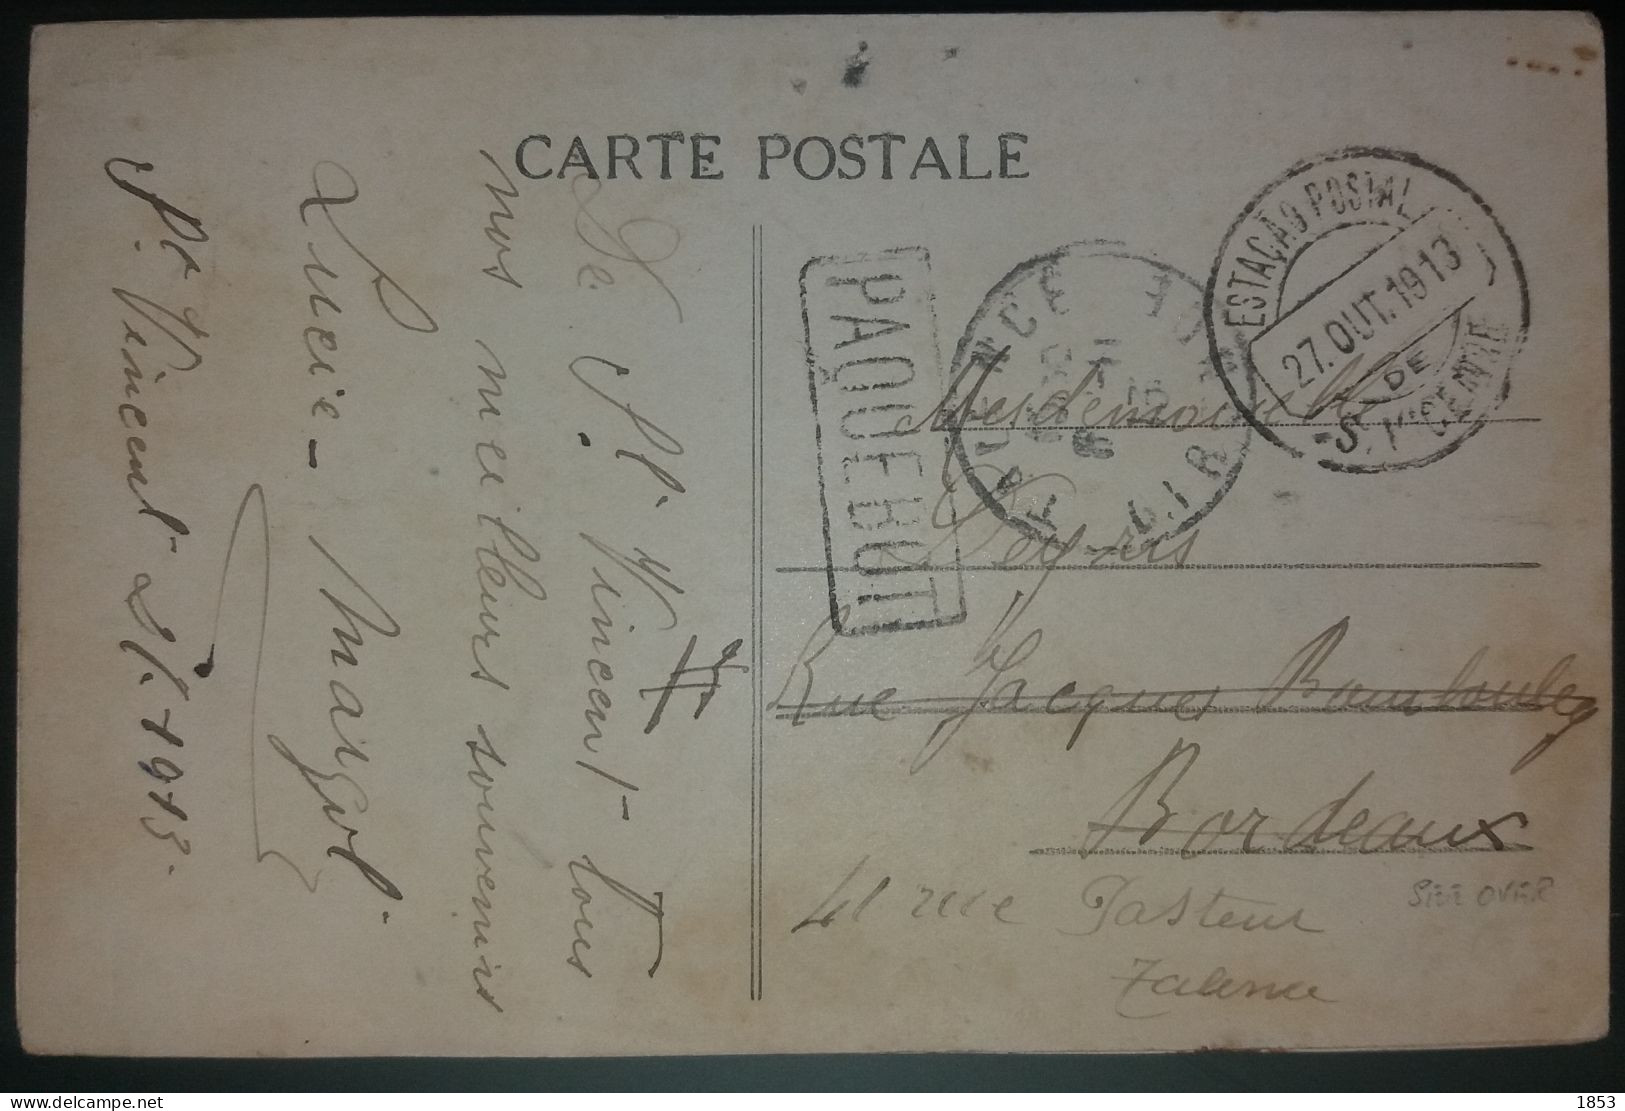 CARTE POSTALE
De St. Vincent tous
nos meilleurs souvenirs
Lucie - Margot
St. Vincent 27. 1913.
PAQUEBOT
TALENCE
GIR
ESTAÇÃO POSTAL
27.OUT.1913
DE
S. VICENTE
Mesdemoiselles
Rue Jacques
Bordeaux
41 rue Pasteur
Talence
SEE OVER
1853